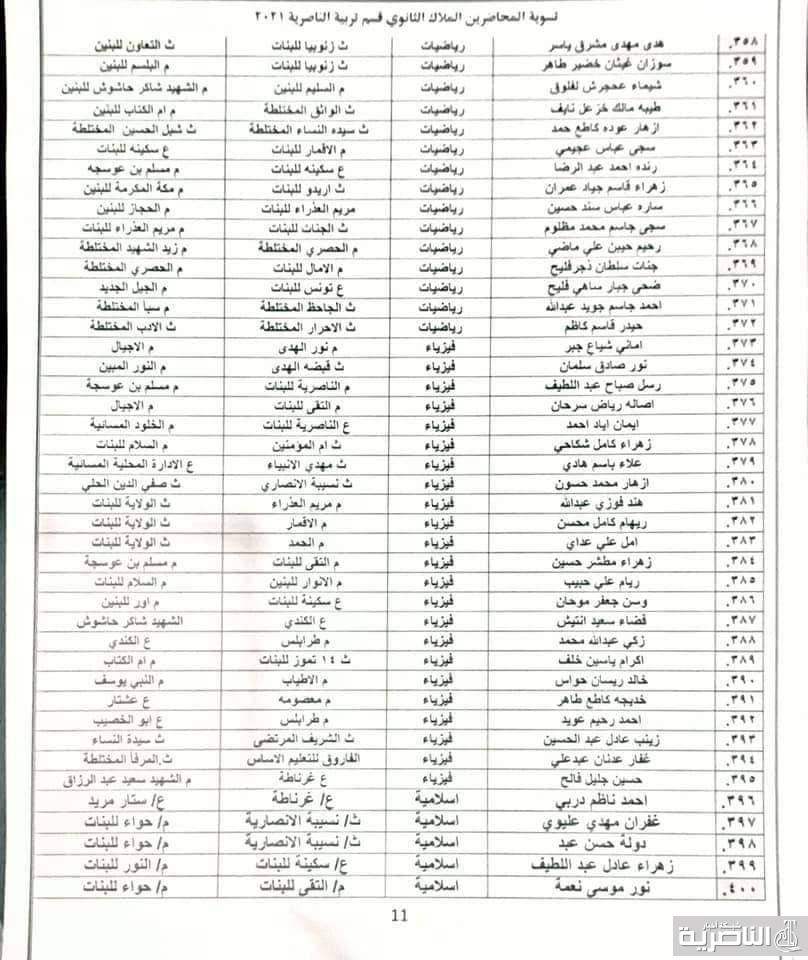 تسوية المحاضرين الملاك الثانوي قسم تربية الناصرية ٢٠٢١
٣٥٨. هدى مهدي مشرق ياسر رياضيات ث زنوبيا للبنات ث التعاون للبنين
٣٥٩. سوزان غيثان خضير طاهر رياضيات ث زنوبيا للبنات م البلسم للبنين
٣٦٠. شيماء عجرش لفلوف رياضيات م السليم للبنين م الشهيد شاكر حاشوش للبنين
٣٦١. طيبه مالك خزعل نايف رياضيات ث الواثق المختلطة م ام الكتاب للبنين
٣٦٢. ازهار عوده كاطع حمد رياضيات ث سيده النساء المختلطة ث شبل الحسين المختلطة
٣٦٣. سجى عباس عجيمي رياضيات م الاقمار للبنات ع سكينه للبنات
٣٦٤. رنده احمد عبد الرضا رياضيات ع سكينه للبنات م مسلم بن عوسجه
٣٦٥. زهراء قاسم جياد عمران رياضيات ث اريدو للبنات م مكة المكرمة للبنين
٣٦٦. ساره عباس سند حسين رياضيات مريم العذراء للبنات م الحجاز للبنين
٣٦٧. سجى جاسم محمد مظلوم رياضيات ث الجنات للبنات م مريم العذراء للبنات
٣٦٨. رحيم حبين علي ماضي رياضيات م الحصري المختلطة م زيد الشهيد المختلطة
٣٦٩. جنات سلطان ذجر فليح رياضيات م الامال للبنات م الحصري المختلطة
٣٧٠. ضحى جبار ساهي فليح رياضيات ع تونس للبنات م الجيل الجديد
٣٧١. احمد جاسم جويد عبدالله رياضيات ث الجاحظ المختلطة م سبأ المختلطة
٣٧٢. حيدر قاسم كاظم رياضيات ث الاحرار المختلطة ث الادب المختلطة
٣٧٣. اماني شياع جبر فيزياء م نور الهدى م الاجيال
٣٧٤. نور صادق سلمان فيزياء ث قبضه الهدى م النور المبين
٣٧٥. رسل صباح عبد اللطيف فيزياء م الناصرية للبنات م مسلم بن عوسجة
٣٧٦. اصاله رياض سرحان فيزياء م التقى للبنات م الاجيال
٣٧٧. ايمان اياد احمد فيزياء ع الناصرية للبنات م الخلود المسائية
٣٧٨. زهراء كامل شكاحي فيزياء ث ام المؤمنين م السلام للبنات
٣٧٩. علاء باسم هادي فيزياء ث مهدي الانبياء ع الادارة المحلية المسائية
٣٨٠. ازهار محمد حسون فيزياء ث نسيبة الانصاري ث صفي الدين الحلي
٣٨١. هند فوزي عبدالله فيزياء م مريم العذراء ث الولاية للبنات
٣٨٢. ريهام كامل محسن فيزياء م الاقمار ث الولاية للبنات
٣٨٣. امل علي عداي فيزياء م الحمد ث الولاية للبنات
٣٨٤. زهراء مطشر حسين فيزياء م التقى للبنات م مسلم بن عوسجة
٣٨٥. ريام علي حبيب فيزياء م الانوار للبنين م السلام للبنات
٣٨٦. وسن جعفر موحان فيزياء ع سكينة للبنات م اور للبنين
٣٨٧. فضاء سعيد انتيش فيزياء ع الكندي الشهيد شاكر حاشوش
٣٨٨. زكي عبدالله محمد فيزياء م طرابلس ع الكندي
٣٨٩. اكرام ياسين خلف فيزياء ث ١٤ تموز للبنات م ام الكتاب
٣٩٠. خالد ريسان حواس فيزياء م الاطياب م النبي يوسف
٣٩١. خديجه كاطع طاهر فيزياء م معصومه ع عشتار
٣٩٢. احمد رحيم عويد فيزياء م طرابلس ع ابو الخصيب
٣٩٣. زينب عادل عبد الحسين فيزياء ث الشريف المرتضى ث سيدة النساء
٣٩٤. غفار عدنان عبدعلي فيزياء الفاروق للتعليم الاساس ث.المرفأ المختلطة
٣٩٥. حسين جليل فالح فيزياء ع غرناطة م الشهيد سعيد عبد الرزاق
٣٩٦. احمد ناظم دربي اسلامية ع/ غرناطة ع/ ستار مريد
٣٩٧. غفران مهدي عليوي اسلامية ث/ نسيبة الانصارية م/ حواء للبنات
٣٩٨. دولة حسن عبد اسلامية ث/ نسيبة الانصارية م/ حواء للبنات
٣٩٩. زهراء عادل عبد اللطيف اسلامية ع/ سكينة للبنات م/ النور للبنات
٤٠٠. نور موسي نعمة اسلامية م/ التقى للبنات م/ حواء للبنات
11
شبكة اخبار
الناصرية